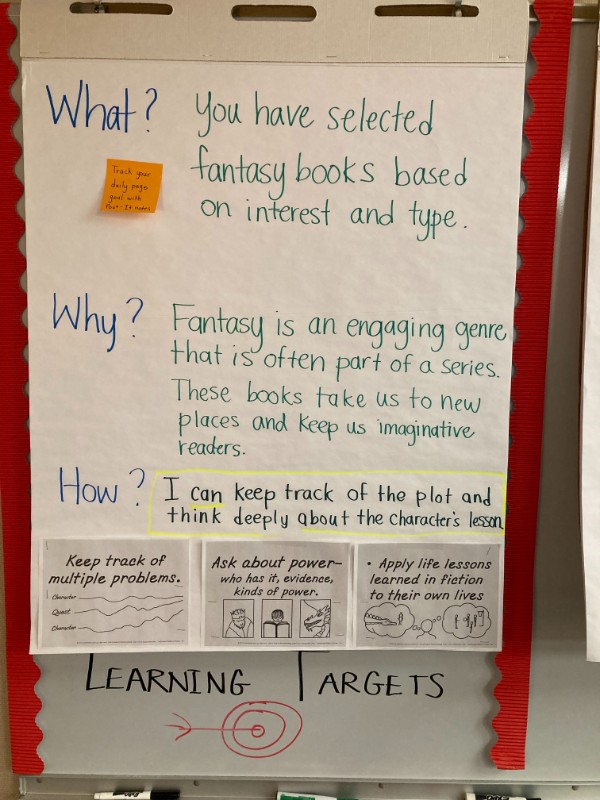 What? You have selected
fantasy books based
on interest and type.
Track your
daily page
goal with
Post-It notes.
Why? Fantasy is an engaging genre
that is often part of a series.
These books take us to new
places and keep us imaginative
readers.
How? I can keep track of the plot and
think deeply about the character's lesson
Keep track of
multiple problems.
Character
Quest
Character
Ask about power-
who has it, evidence,
kinds of power.
• Apply life lessons
learned in fiction
to their own lives
LEARNING TARGETS